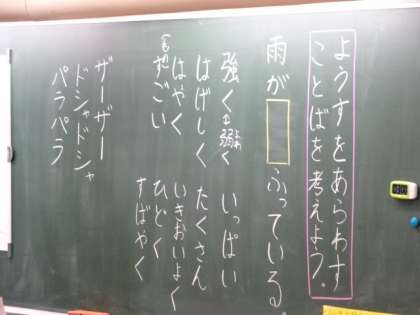 ようすをあらわす
ことばを考えよう。
雨が ふっている。
強く↔弱く いっぱい
はげしく たくさん
はやく いきおいよく
ごい ひどく
すばやく
ザーザー
ドシャドシャ
パラパラ